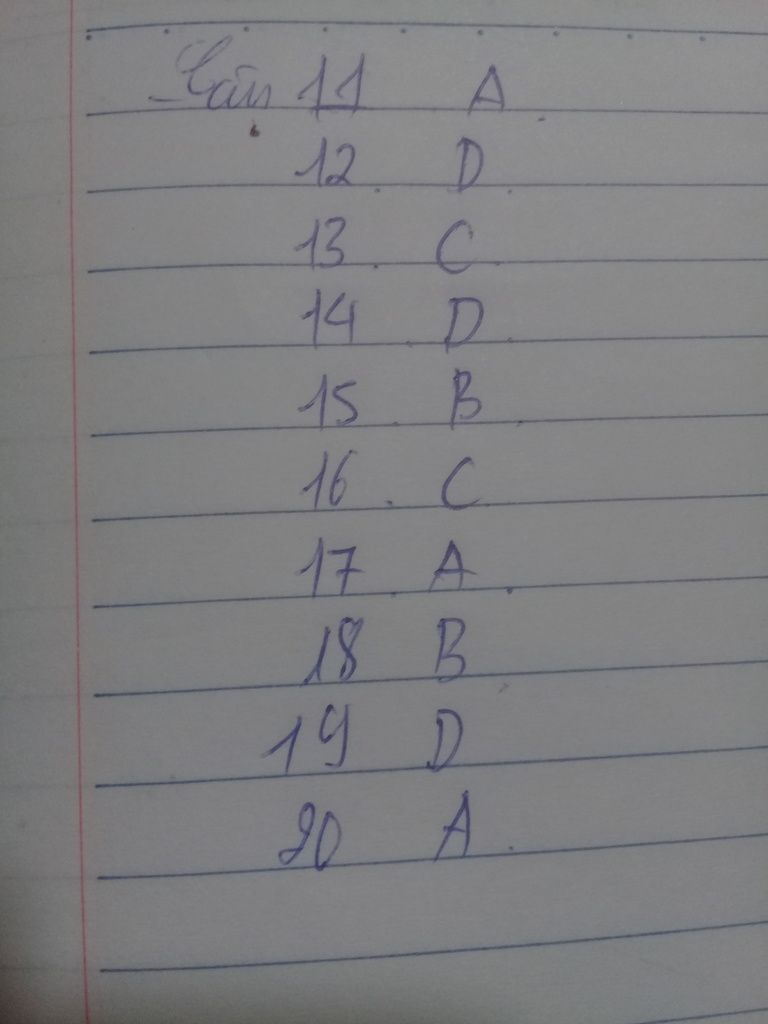 Câu 11 A
12 D
13 C
14 D
15 B
16 C
17 A
18 B
19 D
20 A